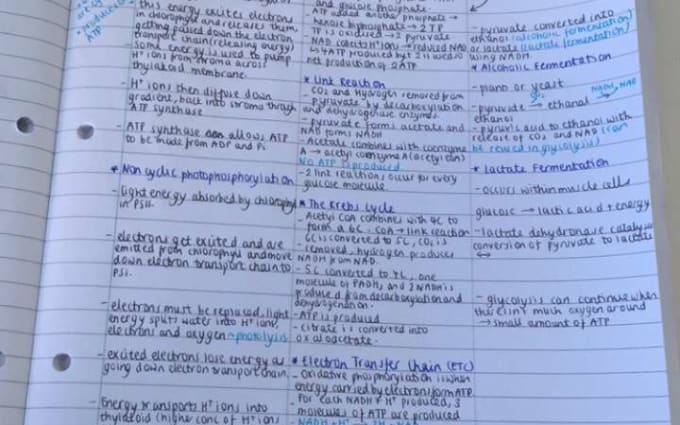 this energy excites electrons
in chlorophyll and releases them,
getting passed down the electron
transport chain (releasing energy)
- some energy is used to pump
H⁺ ions from stroma across
thylakoid membrane.
- H⁺ ions then diffuse down
gradient, back into stroma through
ATP synthase
- ATP synthase allows ATP
to be made from ADP and Pi
* Non cyclic photophosphorylation
- light energy absorbed by chlorophyll
in PSII.
- electrons get excited and are
emitted from chlorophyll and move
down electron transport chain to
PSI.
- electrons must be replaced, light
energy splits water into H⁺ ions,
electrons and oxygen → photolysis
- excited electrons lose energy as
going down electron transport chain,
- Energy transports H⁺ ions into
thylakoid (higher conc of H⁺ ions
and glucose phosphate.
- ATP added another phosphate →
hexose biphosphate → 2 TP
TP is oxidised → 2 pyruvate
NAD collects H⁺ ions → reduced NAD
4 ATP produced but 2 is used so
net production of 2 ATP
* Link Reaction
- CO2 and Hydrogen removed from
pyruvate by decarboxylation
and dehydrogenase enzymes.
- pyruvate forms acetate and
NAD forms NADH
- Acetate combines with coenzyme
A → acetyl coenzyme A (acetyl CoA)
No ATP is produced
- 2 link reactions occur for every
glucose molecule.
* The Krebs Cycle
- Acetyl CoA combines with 4C to
form a 6C. CoA → link reaction
6C is converted to 5C, CO2 is
removed, hydrogen produces
NADH from NAD.
- 5C converted to 4C, one
molecule of FADH2 and 2 NADH is
produced from decarboxylation and
dehydrogenation.
- ATP is produced
- citrate is converted into
oxaloacetate.
* Electron Transfer Chain (ETC)
- Oxidative phosphorylation is when
energy carried by electrons form ATP.
- For each NADH + H⁺ produced, 3
molecules of ATP are produced
- pyruvate converted into
ethanol (alcoholic fermentation)
or lactate (lactate fermentation)
using NADH.
* Alcoholic Fermentation
- plant or yeast
CO2 NADH NAD
- pyruvate → ethanal →
ethanol
- pyruvic acid to ethanol with
release of CO2 and NAD (can
be reused in glycolysis)
* Lactate Fermentation
- occurs within muscle cells
glucose → lactic acid + energy
- lactate dehydronase catalyses
conversion of pyruvate to lactate
↔
- glycolysis can continue when
there isn't much oxygen around
→ small amount of ATP